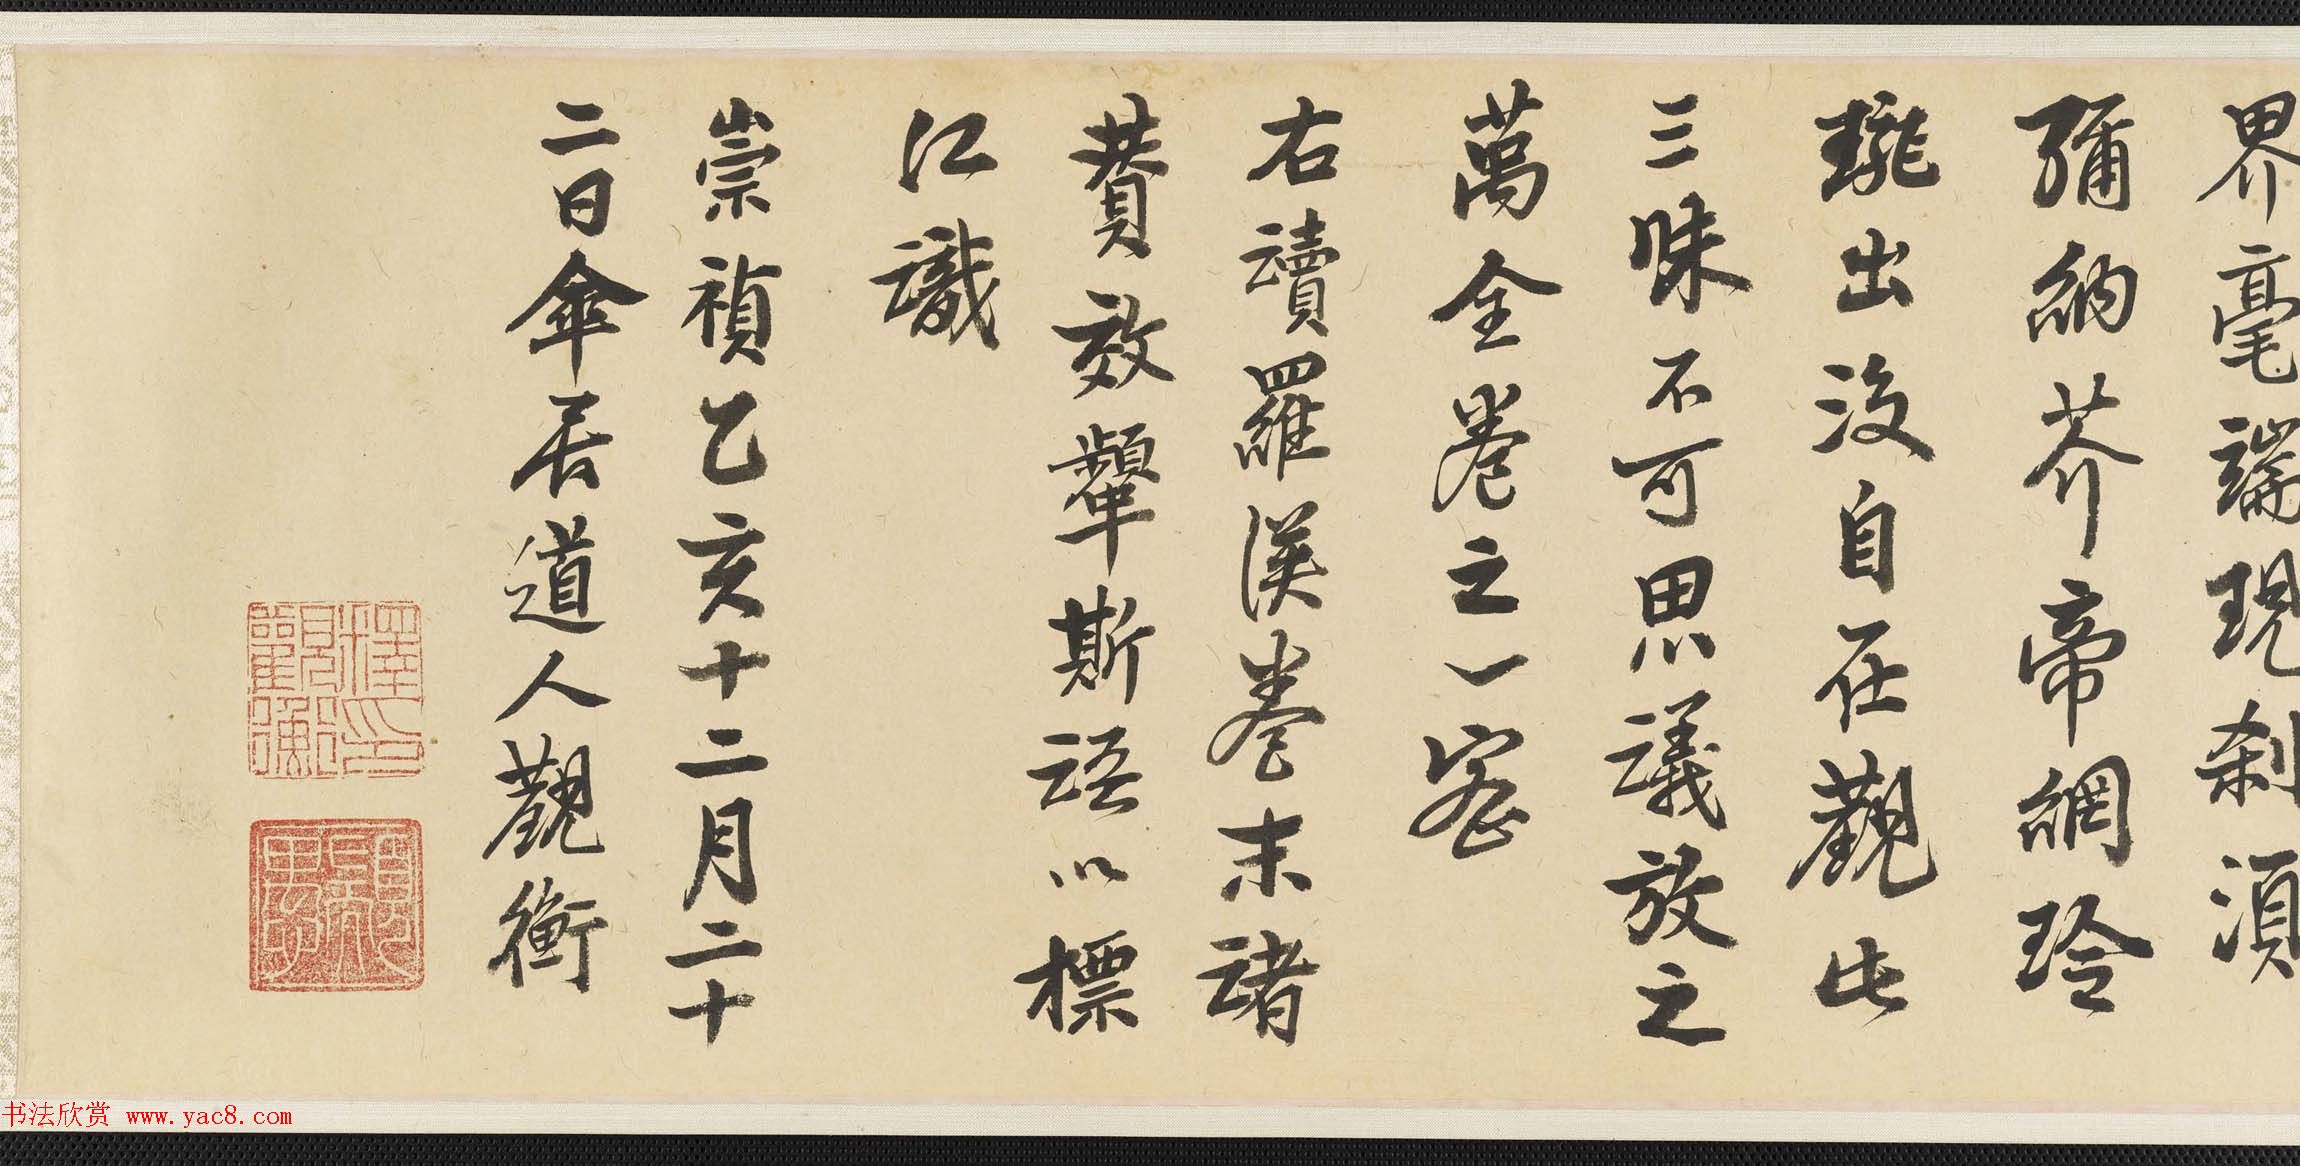 界毫端現刹須
彌納芥帝網玲
瓏出沒自在觀此
三昧不可思議放之
萬全卷之一密
右讀羅漢卷末諸
賛效顰斯語以標
江識
崇禎乙亥十二月二十
二日傘居道人觀衡
釋觀衡印
顓愚
书法欣赏 www.yac8.com